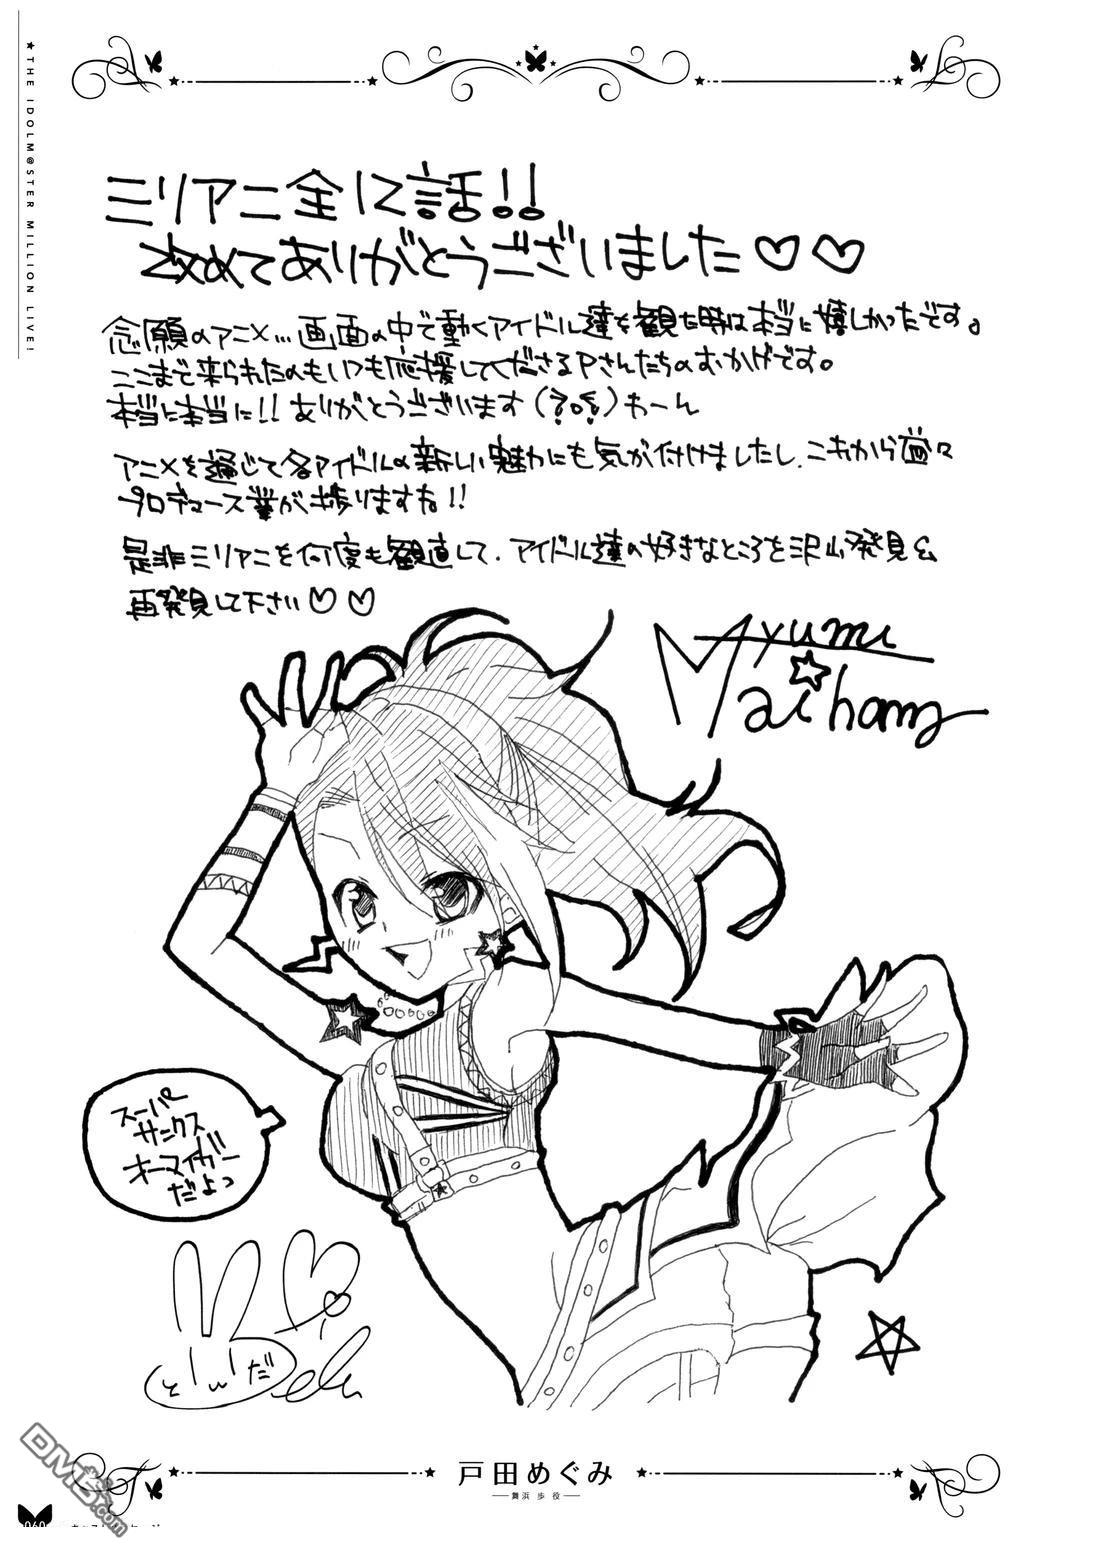 ★THE IDOLM@STER MILLION LIVE!
ミリアニ全12話!!
改めてありがとうございました♡♡
念願のアニメ…画面の中で動くアイドル達を観た時は本当に嬉しかったです。
ここまで来られたのもいつも応援してくださるPさんたちのおかげです。
本当に本当に!! ありがとうございます わーん
アニメを通じて各アイドルの新しい魅力にも気が付けましたし、これから益々
プロデュース業が捗りますね!!
是非ミリアニを何度も観直して、アイドル達の好きなところを沢山発見&
再発見して下さい♡♡
Ayumi
Maihama
スーパー
サンクス
オーマイガー
だよっ
とぅだ
戸田めぐみ
舞浜 歩 役
060